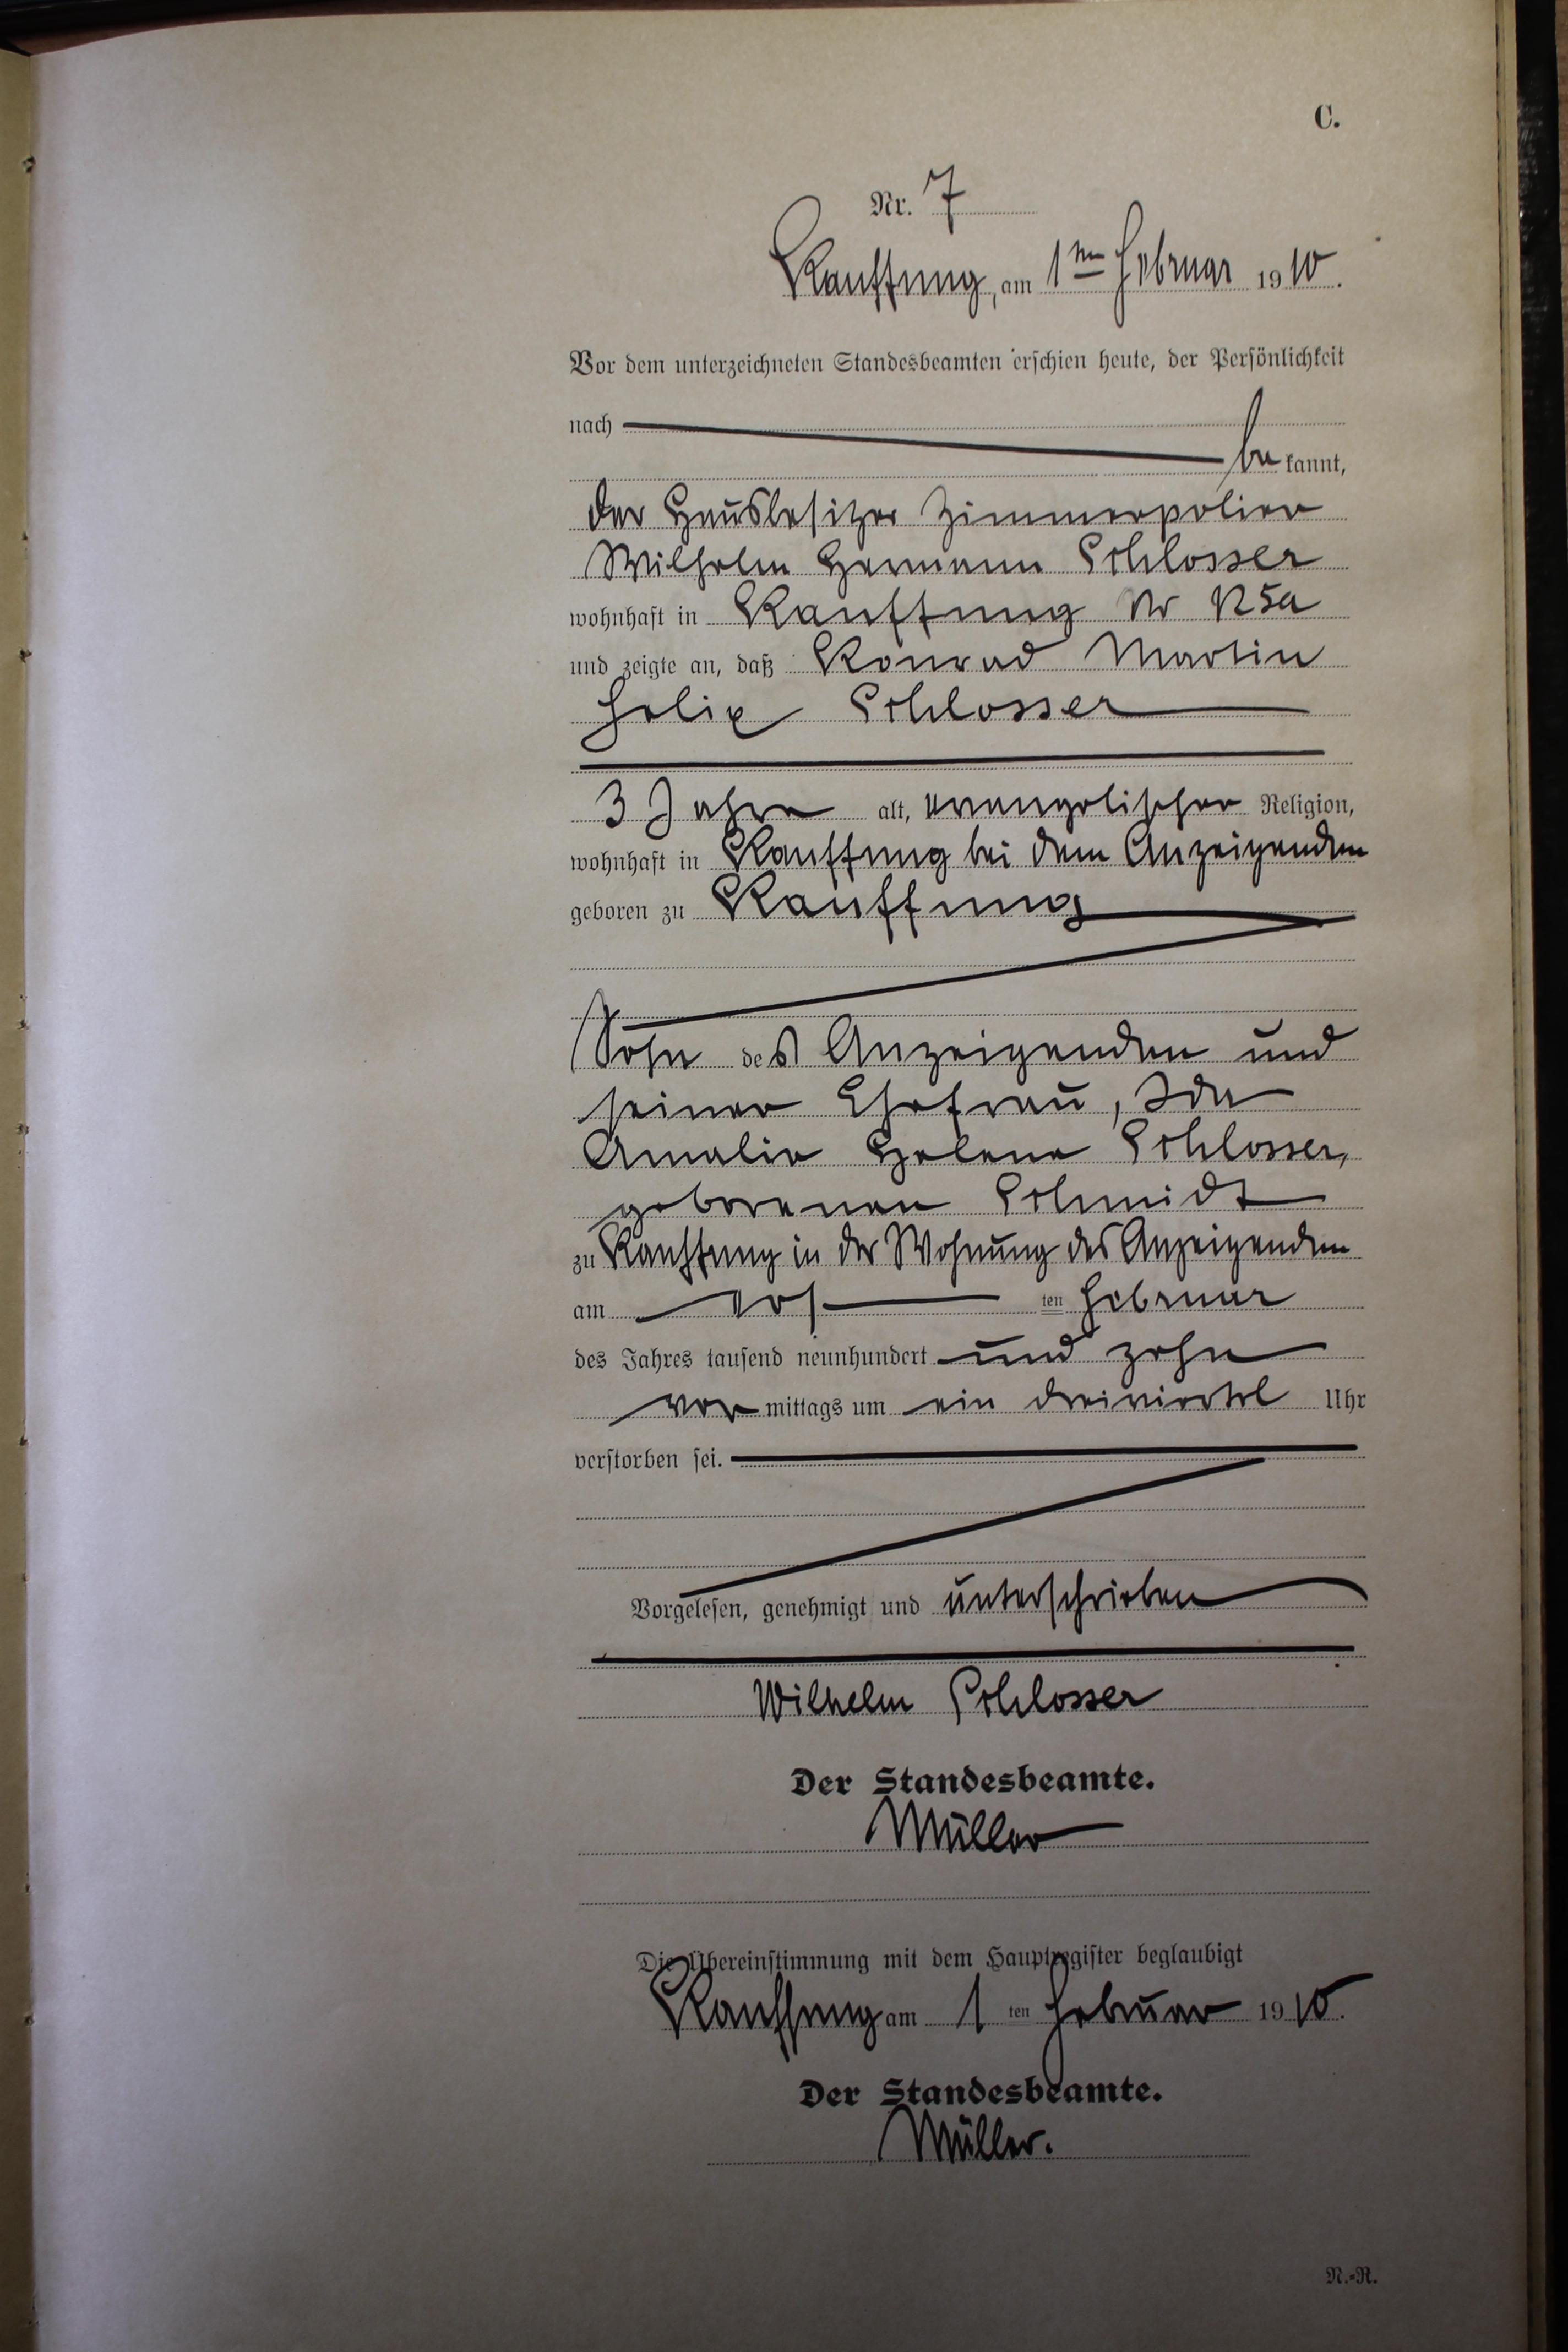 C.
Nr. 7
Kauffung, am 1ten Februar 1910.
Vor dem unterzeichneten Standesbeamten erschien heute, der Persönlichkeit
nach
bekannt,
der Hausbesitzer Zimmerpolier
Wilhelm Hermann Schlosser
wohnhaft in Kauffung Nr 125a
und zeigte an, daß Konrad Martin
Felix Schlosser
3 Jahre alt, evangelischer Religion,
wohnhaft in Kauffung bei dem Anzeigenden
geboren zu Kauffung
Sohn des Anzeigenden und
seiner Ehefrau, Ida
Amalie Helene Schlosser,
geborenen Schmidt
zu Kauffung in der Wohnung des Anzeigenden
am ten Februar
des Jahres tausend neunhundert und zehn
vor mittags um ein dreiviertel Uhr
verstorben sei.
Vorgelesen, genehmigt und unterschrieben
Wilhelm Schlosser
Der Standesbeamte.
Müller
Die Übereinstimmung mit dem Hauptregister beglaubigt
Kauffung am 1 ten Februar 1910.
Der Standesbeamte.
Müller.
N.-R.